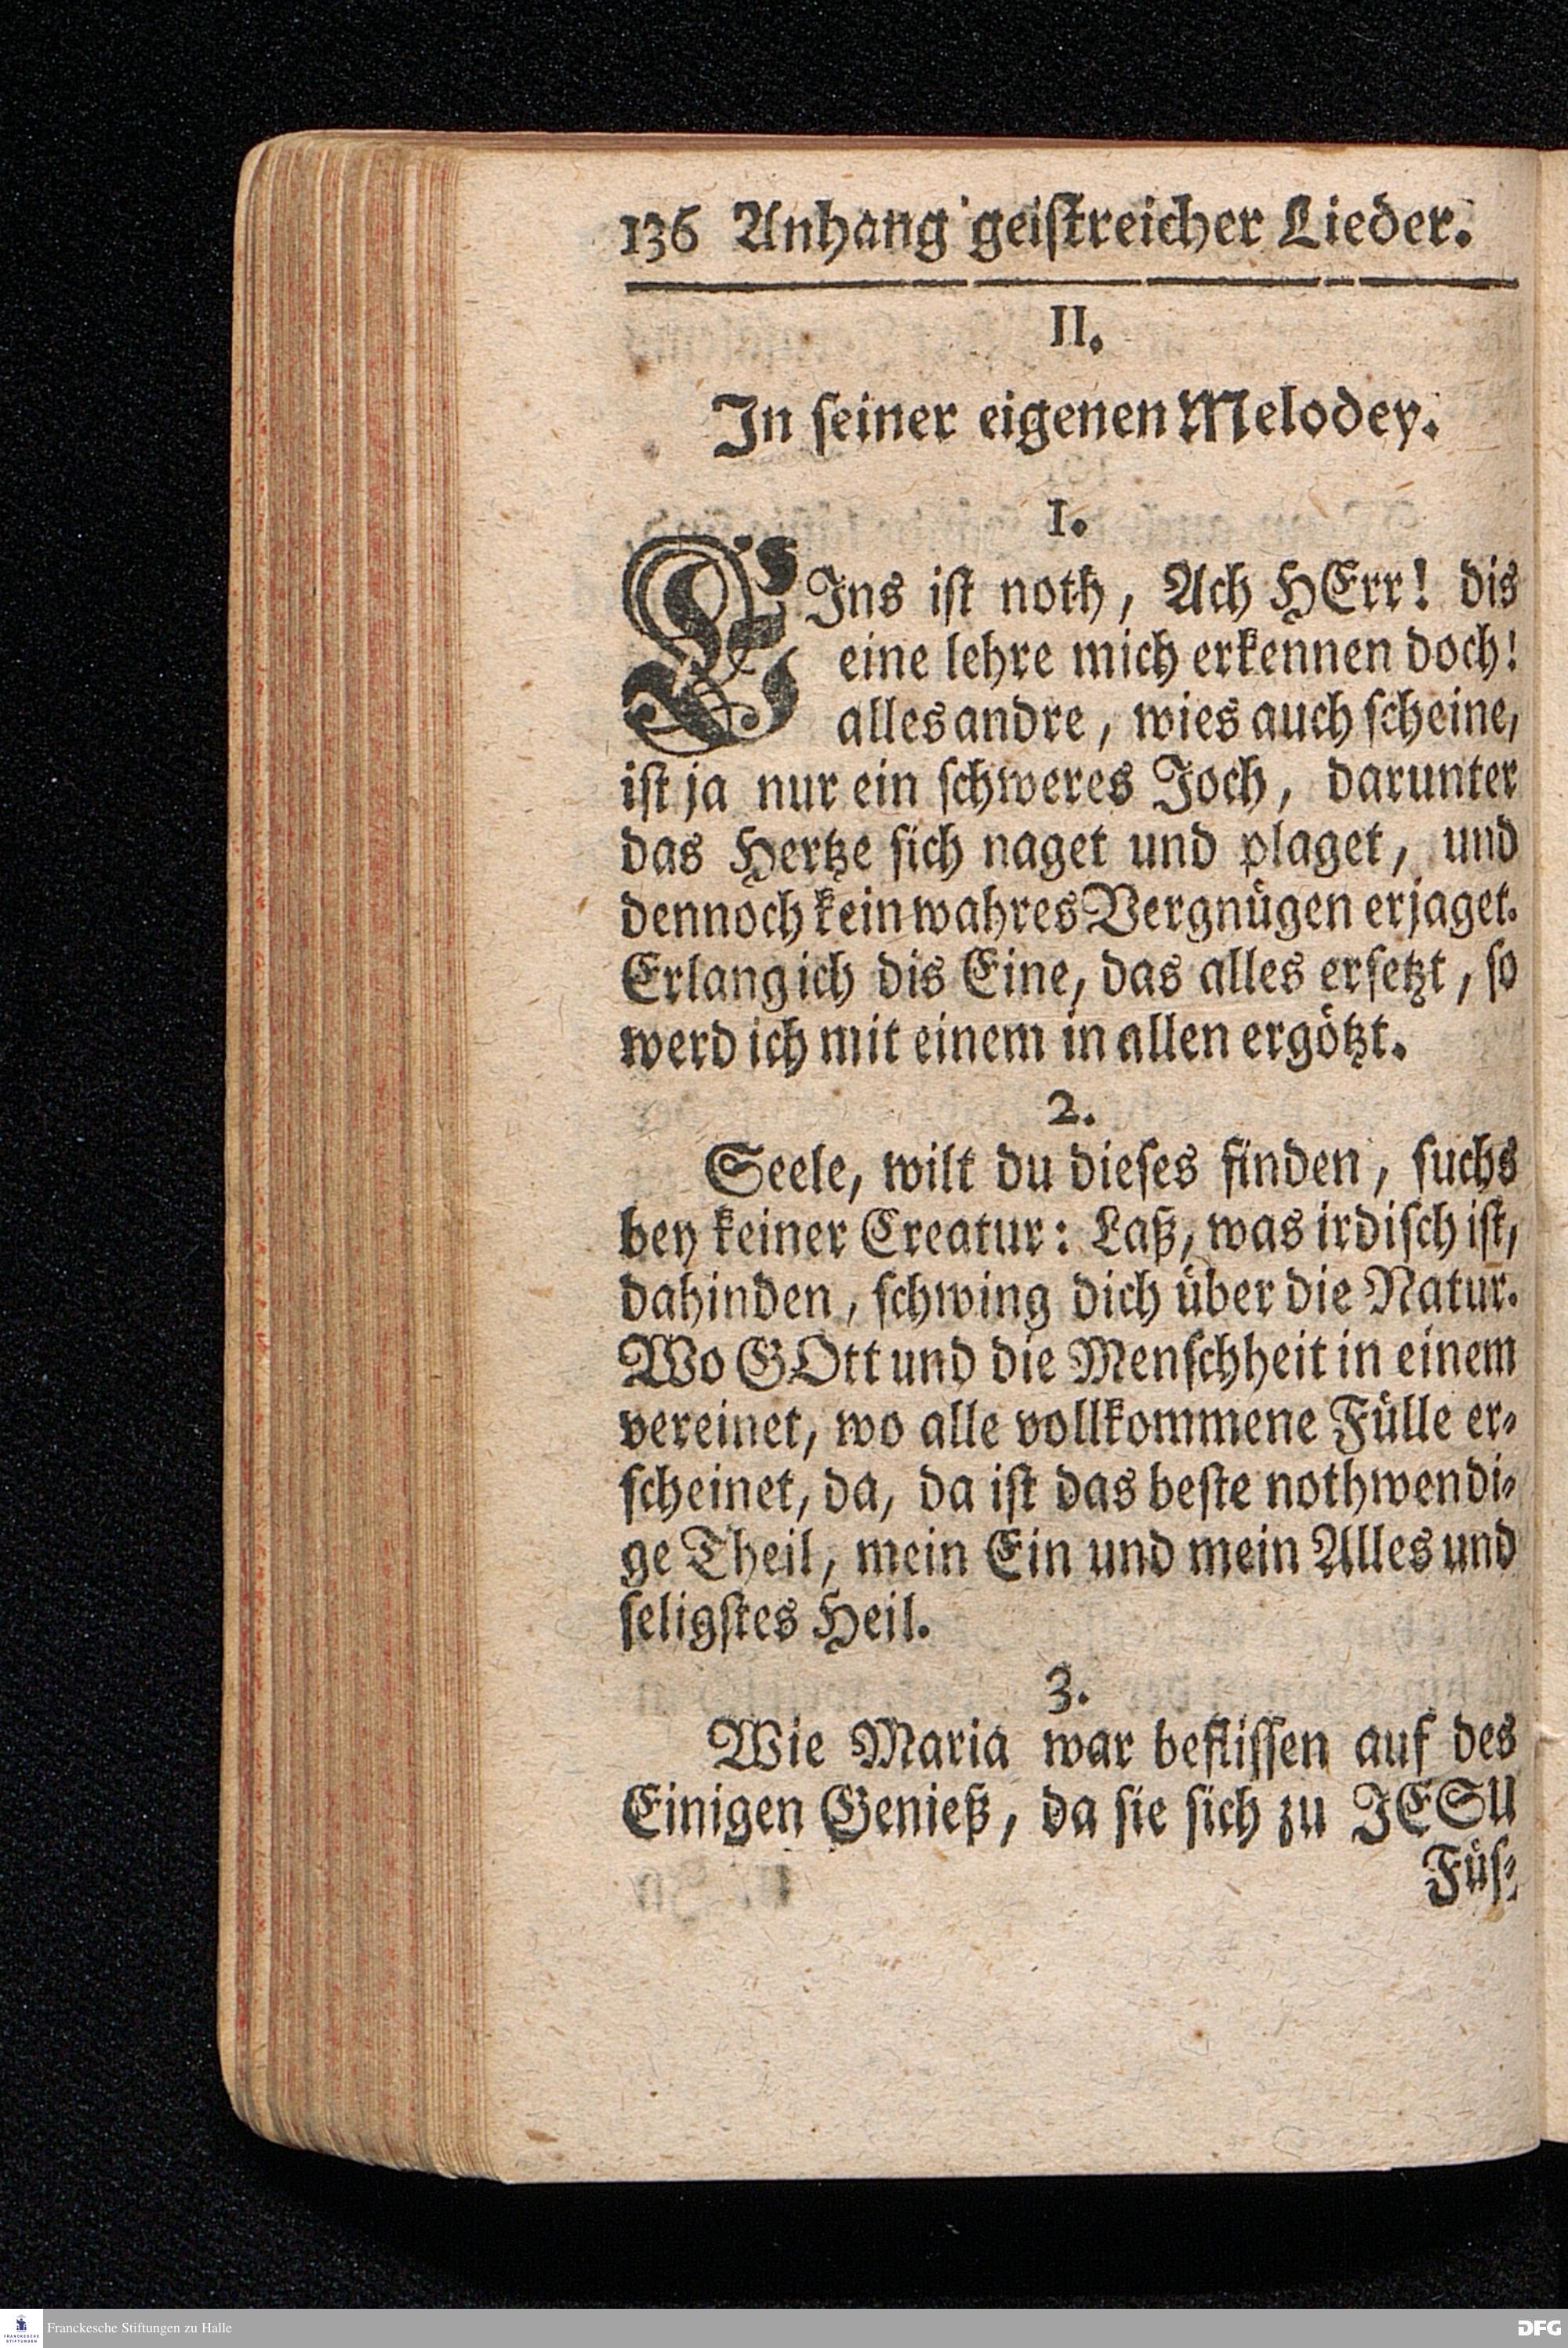 136 Anhang geiſtreicher Lieder.
II.
In ſeiner eigenen Melodey.
1.
EIns iſt noth, Ach HErr! dis
eine lehre mich erkennen doch!
alles andre, wies auch ſcheine,
iſt ja nur ein ſchweres Joch, darunter
das Hertze ſich naget und plaget, und
dennoch kein wahres Vergnügen erjaget.
Erlang ich dis Eine, das alles erſetzt, ſo
werd ich mit einem in allen ergötzt.
2.
Seele, wilt du dieſes finden, ſuchs
bey keiner Creatur: Laß, was irdiſch iſt,
dahinden, ſchwing dich über die Natur.
Wo GOtt und die Menſchheit in einem
vereinet, wo alle vollkommene Fülle er⸗
ſcheinet, da, da iſt das beſte nothwendi⸗
ge Theil, mein Ein und mein Alles und
ſeligſtes Heil.
3.
Wie Maria war befliſſen auf des
Einigen Genieß, da ſie ſich zu JESU
Füſ⸗
FRANCKESCHE STIFTUNGEN
Franckesche Stiftungen zu Halle
DFG